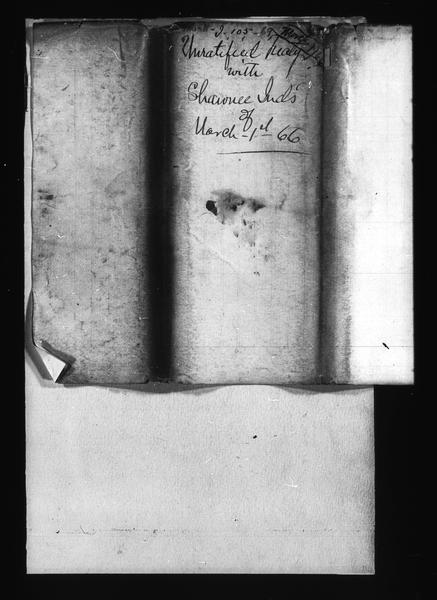 I. 105-69
Unratified Treaty
with
Shawnee Ind's
of
March 1st 66